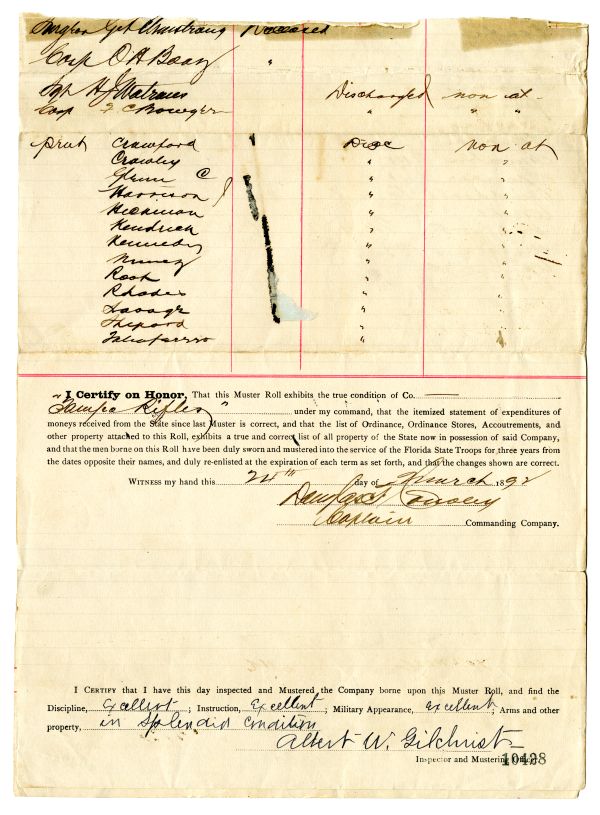 Surgeon Geo Armstrong Deceased
Corp O H Boaz "
Sgt H J Watrous Discharged non at
Corp F C Bowyer " " "
Privt Crawford Disc non at
Crowley " "
Glenn C " "
Harrison J " "
Hickman " "
Kendrick " "
Kennedy " "
Nunez " "
Rook " "
Rhodes " "
Savage " "
Shepard " "
Taliaferro " "
I Certify on Honor, That this Muster Roll exhibits the true condition of Co. —
"Tampa Rifles" under my command, that the itemized statement of expenditures of
moneys received from the State since last Muster is correct, and that the list of Ordinance, Ordnance Stores, Accoutrements, and
other property attached to this Roll, exhibits a true and correct list of all property of the State now in possession of said Company,
and that the men borne on this Roll have been duly sworn and mustered into the service of the Florida State Troops for three years from
the dates opposite their names, and duly re-enlisted at the expiration of each term as set forth, and that the changes shown are correct.
WITNESS my hand this 24th day of March 1892
Captain Commanding Company.
I CERTIFY that I have this day inspected and Mustered the Company borne upon this Muster Roll, and find the
Discipline, Excellent; Instruction, Excellent; Military Appearance, excellent; Arms and other
property, in splendid condition
Albert W. Gilchrist
Inspector and Mustering Officer.
10498